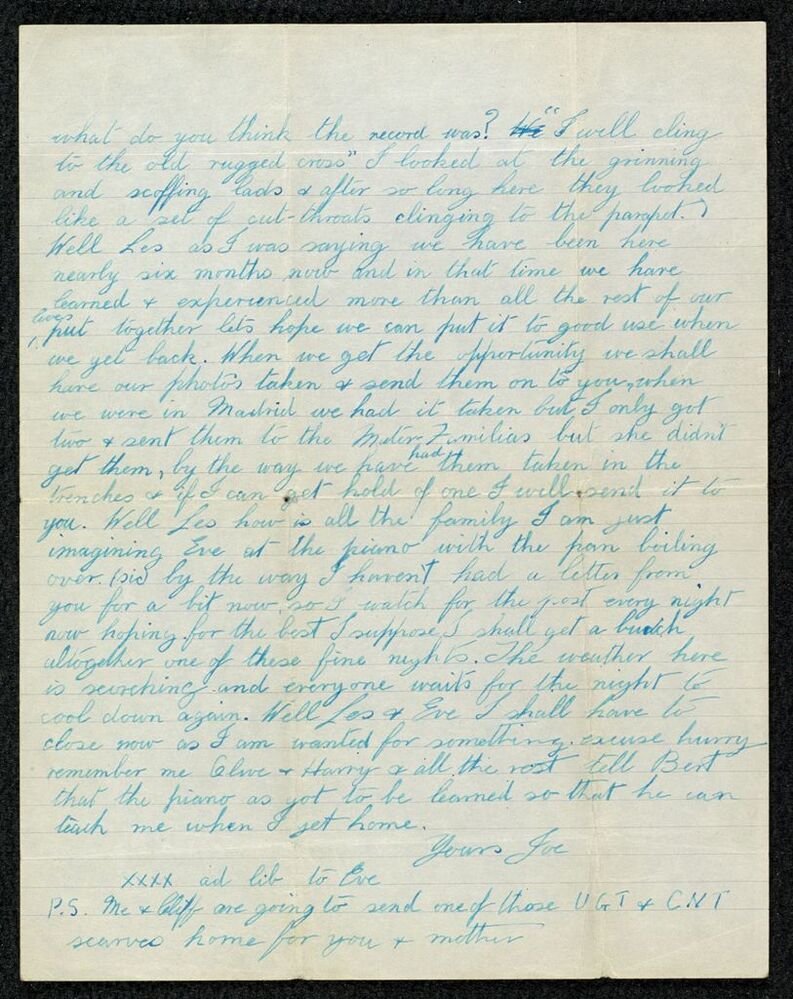 what do you think the record was? "I will cling
to the old rugged cross" I looked at the grinning
and scoffing lads & after so long here they looked
like a set of cut-throats clinging to the parapet. )
Well Les as I was saying we have been here
nearly six months now and in that time we have
learned & experienced more than all the rest of our
lives
put together lets hope we can put it to good use when
we get back. When we get the opportunity we shall
have our photo's taken & send them on to you, when
we were in Madrid we had it taken but I only got
two & sent them to the Mater Familias but she didn't
get them, by the way we have had them taken in the
trenches & if I can get hold of one I will send it to
you. Well Les how is all the family I am just
imagining Eve at the piano with the pan boiling
over. (sic) by the way I haven't had a letter from
you for a bit now, so I watch for the post every night
now hoping for the best I suppose I shall get a bunch
altogether one of these fine nights. The weather here
is scorching and everyone waits for the night to
cool down again. Well Les & Eve I shall have to
close now as I am wanted for something. excuse hurry
remember me Clive & Harry & all the rest tell Bert
that the piano as got to be learned so that he can
teach me when I get home.
Yours Joe
xxxx ad lib to Eve
P.S. Me & Cliff are going to send one of those U G T & C.N.T
scarves home for you & mother